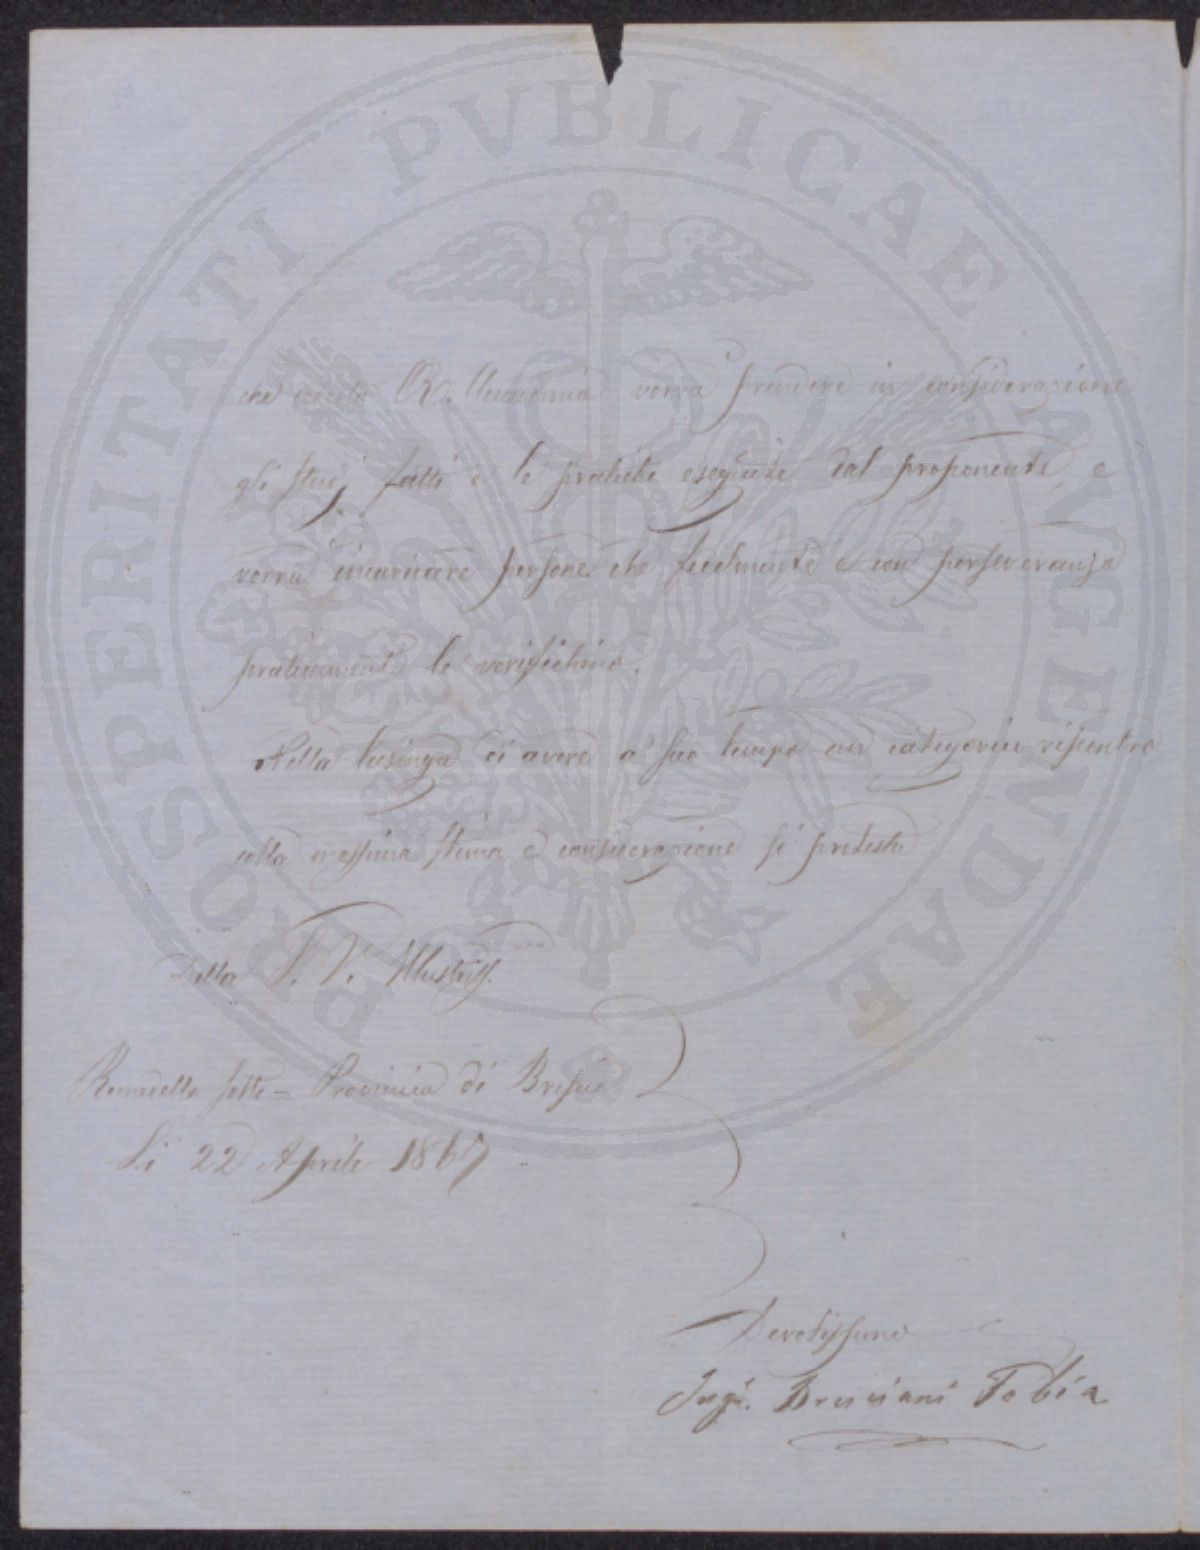 PROSPERITATI PVBLICAE AVGENDAE
che codesta R. Accademia vorrà prendere in considerazione
gli studj fatti e le pratiche eseguite dal proponente, e
vorrà incaricare persone che fedelmente e con perseveranza
praticamente le verifichino.
Nella lusinga di avere a suo tempo un categorico riscontro
colla massima stima e considerazione si protesta
Della S. V. Illustriss.ma
Remedello Sotto = Provincia di Brescia
Li 22 Aprile 1867
Devotissimo
Ing. Bresciani Tobia